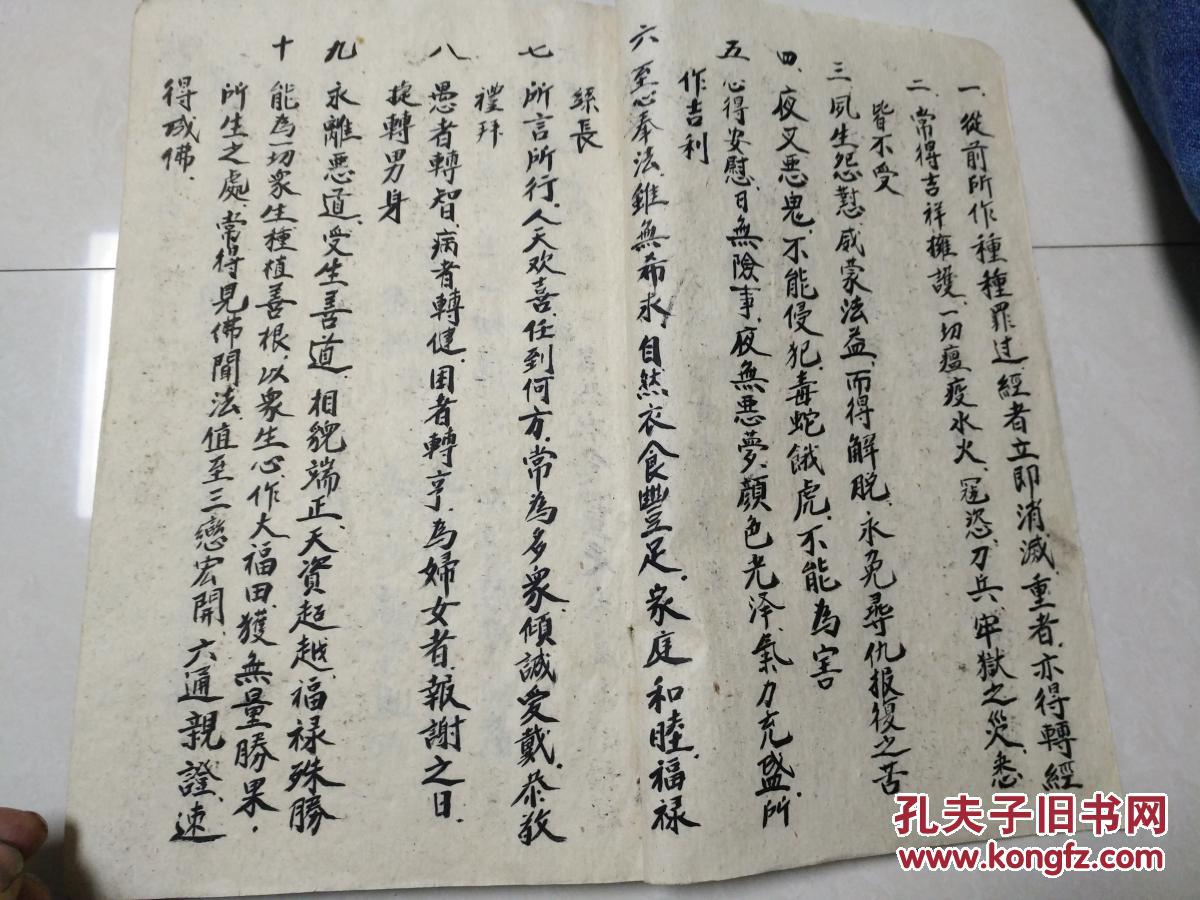 一、從前所作種種罪过、經者立即消滅、重者、亦得轉經
二、常得吉祥擁護、一切瘟疫水火、冦恣、刀兵、牢獄之災、悉
皆不受
三、夙生怨懟咸蒙法益、而得解脱、永免尋仇报復之苦
四、夜叉恶鬼、不能侵犯、毒蛇餓虎、不能為害
五 心得安慰、日無險事、夜無悪夢、顔色光泽、氣力充盛、所
作吉利
六 至心奉法、雖無希求、自然衣食豐足、家庭和睦、福禄
綿長
七 所言所行、人天欢喜、任到何方、常為多衆、傾誠爱戴、恭敬
禮拜
八 愚者轉智、病者轉健、困者轉亨、為婦女者、報謝之日、
捷轉男身
九 永離悪道、受生善道、相貌端正、天資超越、福禄殊勝
十 能為一切衆生、種植善根、以衆生心、作大福田、獲無量勝果、
所生之處、常得見佛聞法、值至三戀宏開、六通親證、速
得成佛、
孔夫子旧书网
www.kongfz.com